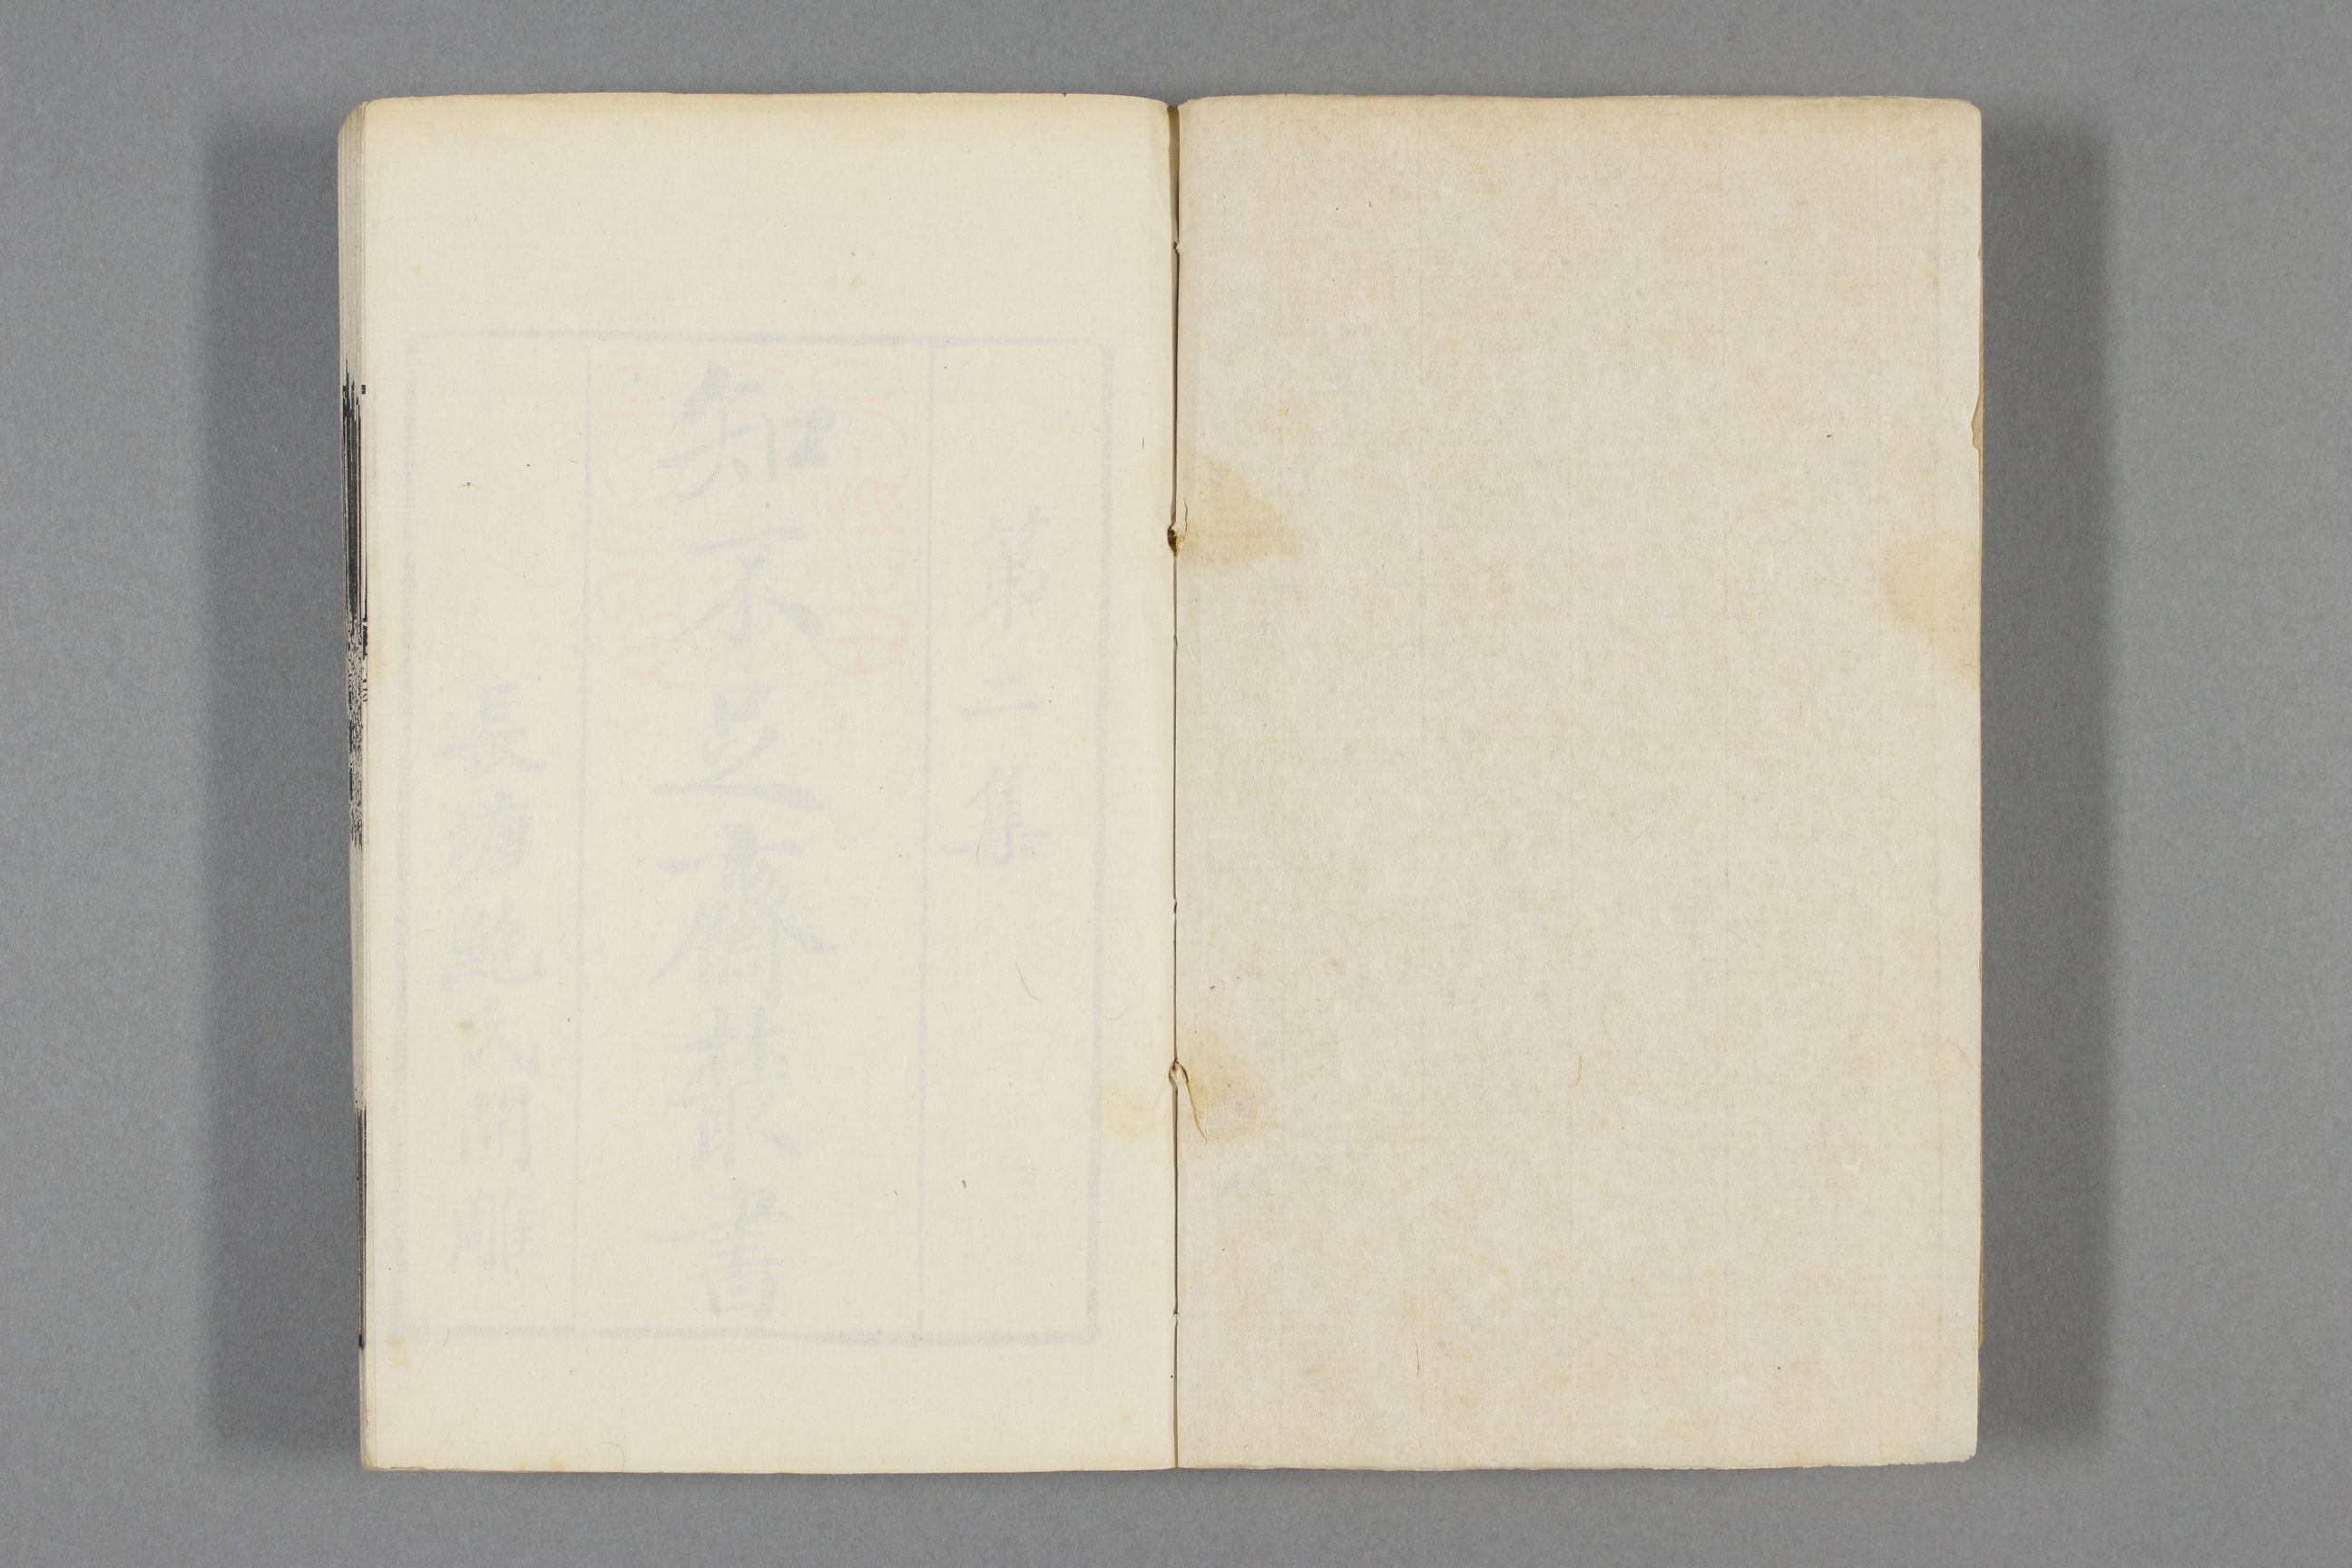 第二集
知不足齋叢書
長塘鮑氏開雕